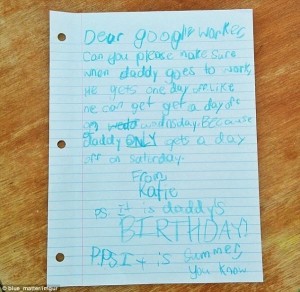 Dear google worker
Can you please make sure
when daddy goes to work
He gets one day off. LIKE
he can get get a day off
on wedd wednesday. BECause
daddy ONLY gets a day
off on saturday.
From
Katie
PS. It is daddy's
BIRTHDAY!
P.PS It is summer,
you know
© blue_matter/imgur